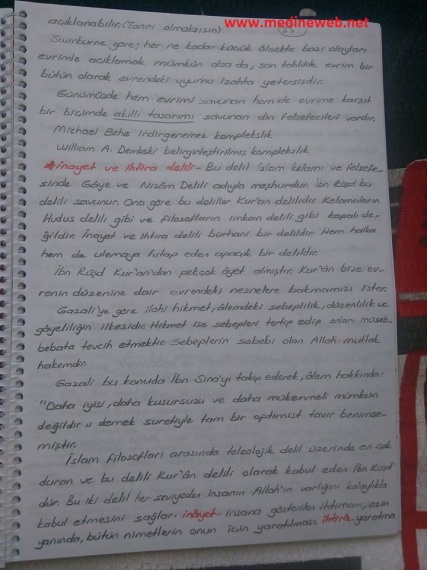 www.medineweb.net
açıklanabilir. (Tanrı olmaksızın)
Swinburne göre; her ne kadar küçük ölçekte bazı olayları
evrimle açıklamak mümkün olsa da, son tahlilde evrim bir
bütün olarak evrendeki uyumu izahta yetersizdir.
Günümüzde hem evrimi savunan hemde evrime karşıt
bir biçimde akıllı tasarımı savunan din felsefecileri vardır.
Michael Behe indirgenemez komplekslik
William A. Dembski belirginleştirilmiş komplekslik
*İnayet ve İhtira delili- Bu delil İslam kelamı ve felsefe-
sinde Gâye ve Nizâm Delili adıyla meşhurdur. İbn Rüşd bu
delili savunur. Ona göre bu deliller Kur'an delilidir. Kelamcıların
Hudus delili gibi ve filozofların imkan delili gibi kapalı de-
ğildir. İnayet ve ihtira delili burhani bir delildir. Hem halka
hem de ulemaya hitap eden apaçık bir delildir.
İbn Rüşd Kur'an'dan pekçok âyet almıştır. Kur'ân bize ev-
renin düzenine dair evrendeki nesnelere bakmamızı ister.
Gazali'ye göre ilahi hikmet, âlemdeki sebeplilik, düzenlilik ve
gâyeliliğin ilkesidir. Hikmet ise sebepleri tertip edip onları müseb-
bebata tevcih etmektir. Sebeplerin sebebi olan Allah mutlak
hakimdir.
Gazali bu konuda İbn Sina'yı takip ederek, âlem hakkında:
"Daha iyisi, daha kusursuzu ve daha mükemmeli mümkün
değildir" demek suretiyle tam bir optimist tavır benimse-
miştir.
İslam filozofları arasında teleolojik delil üzerinde en çok
duran ve bu delili Kur'ân delili olarak kabul eden İbn Rüşd
dür. Bu iki delil her seviyeden insanın Allah'ın varlığını kolaylıkla
kabul etmesini sağlar. inâyet- insana gösterilen ihtimam, esen
yanında, bütün nimetlerin onun için yaratılması. ihtira- yaratma